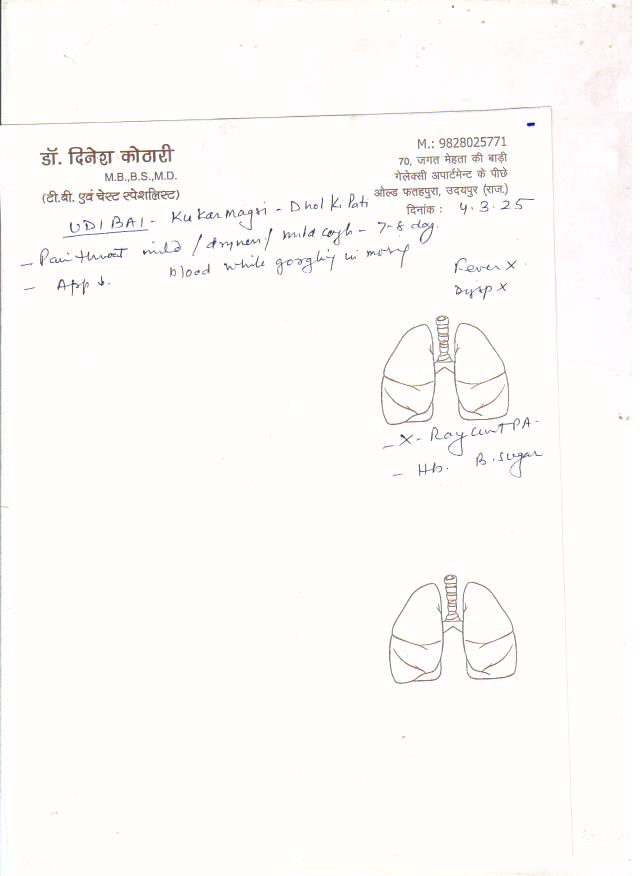 डॉ. दिनेश कोठारी
M.B.,B.S.,M.D.
(टी.बी. एवं चेस्ट स्पेशलिस्ट)
M.: 9828025771
70, जगत मेहता की बाड़ी
गेलेक्सी अपार्टमेन्ट के पीछे
ओल्ड फतहपुरा, उदयपुर (राज.)
दिनांक : 4.3.25
UDI BAI - Kukarmagri - Dhol Ki Pati
- Pain throat mild / dryness / mild cough - 7-8 day.
blood while gargling in
- App ↓.
Fever X
Dysp X
- X-Ray PA.
- Hb. B. Sugar